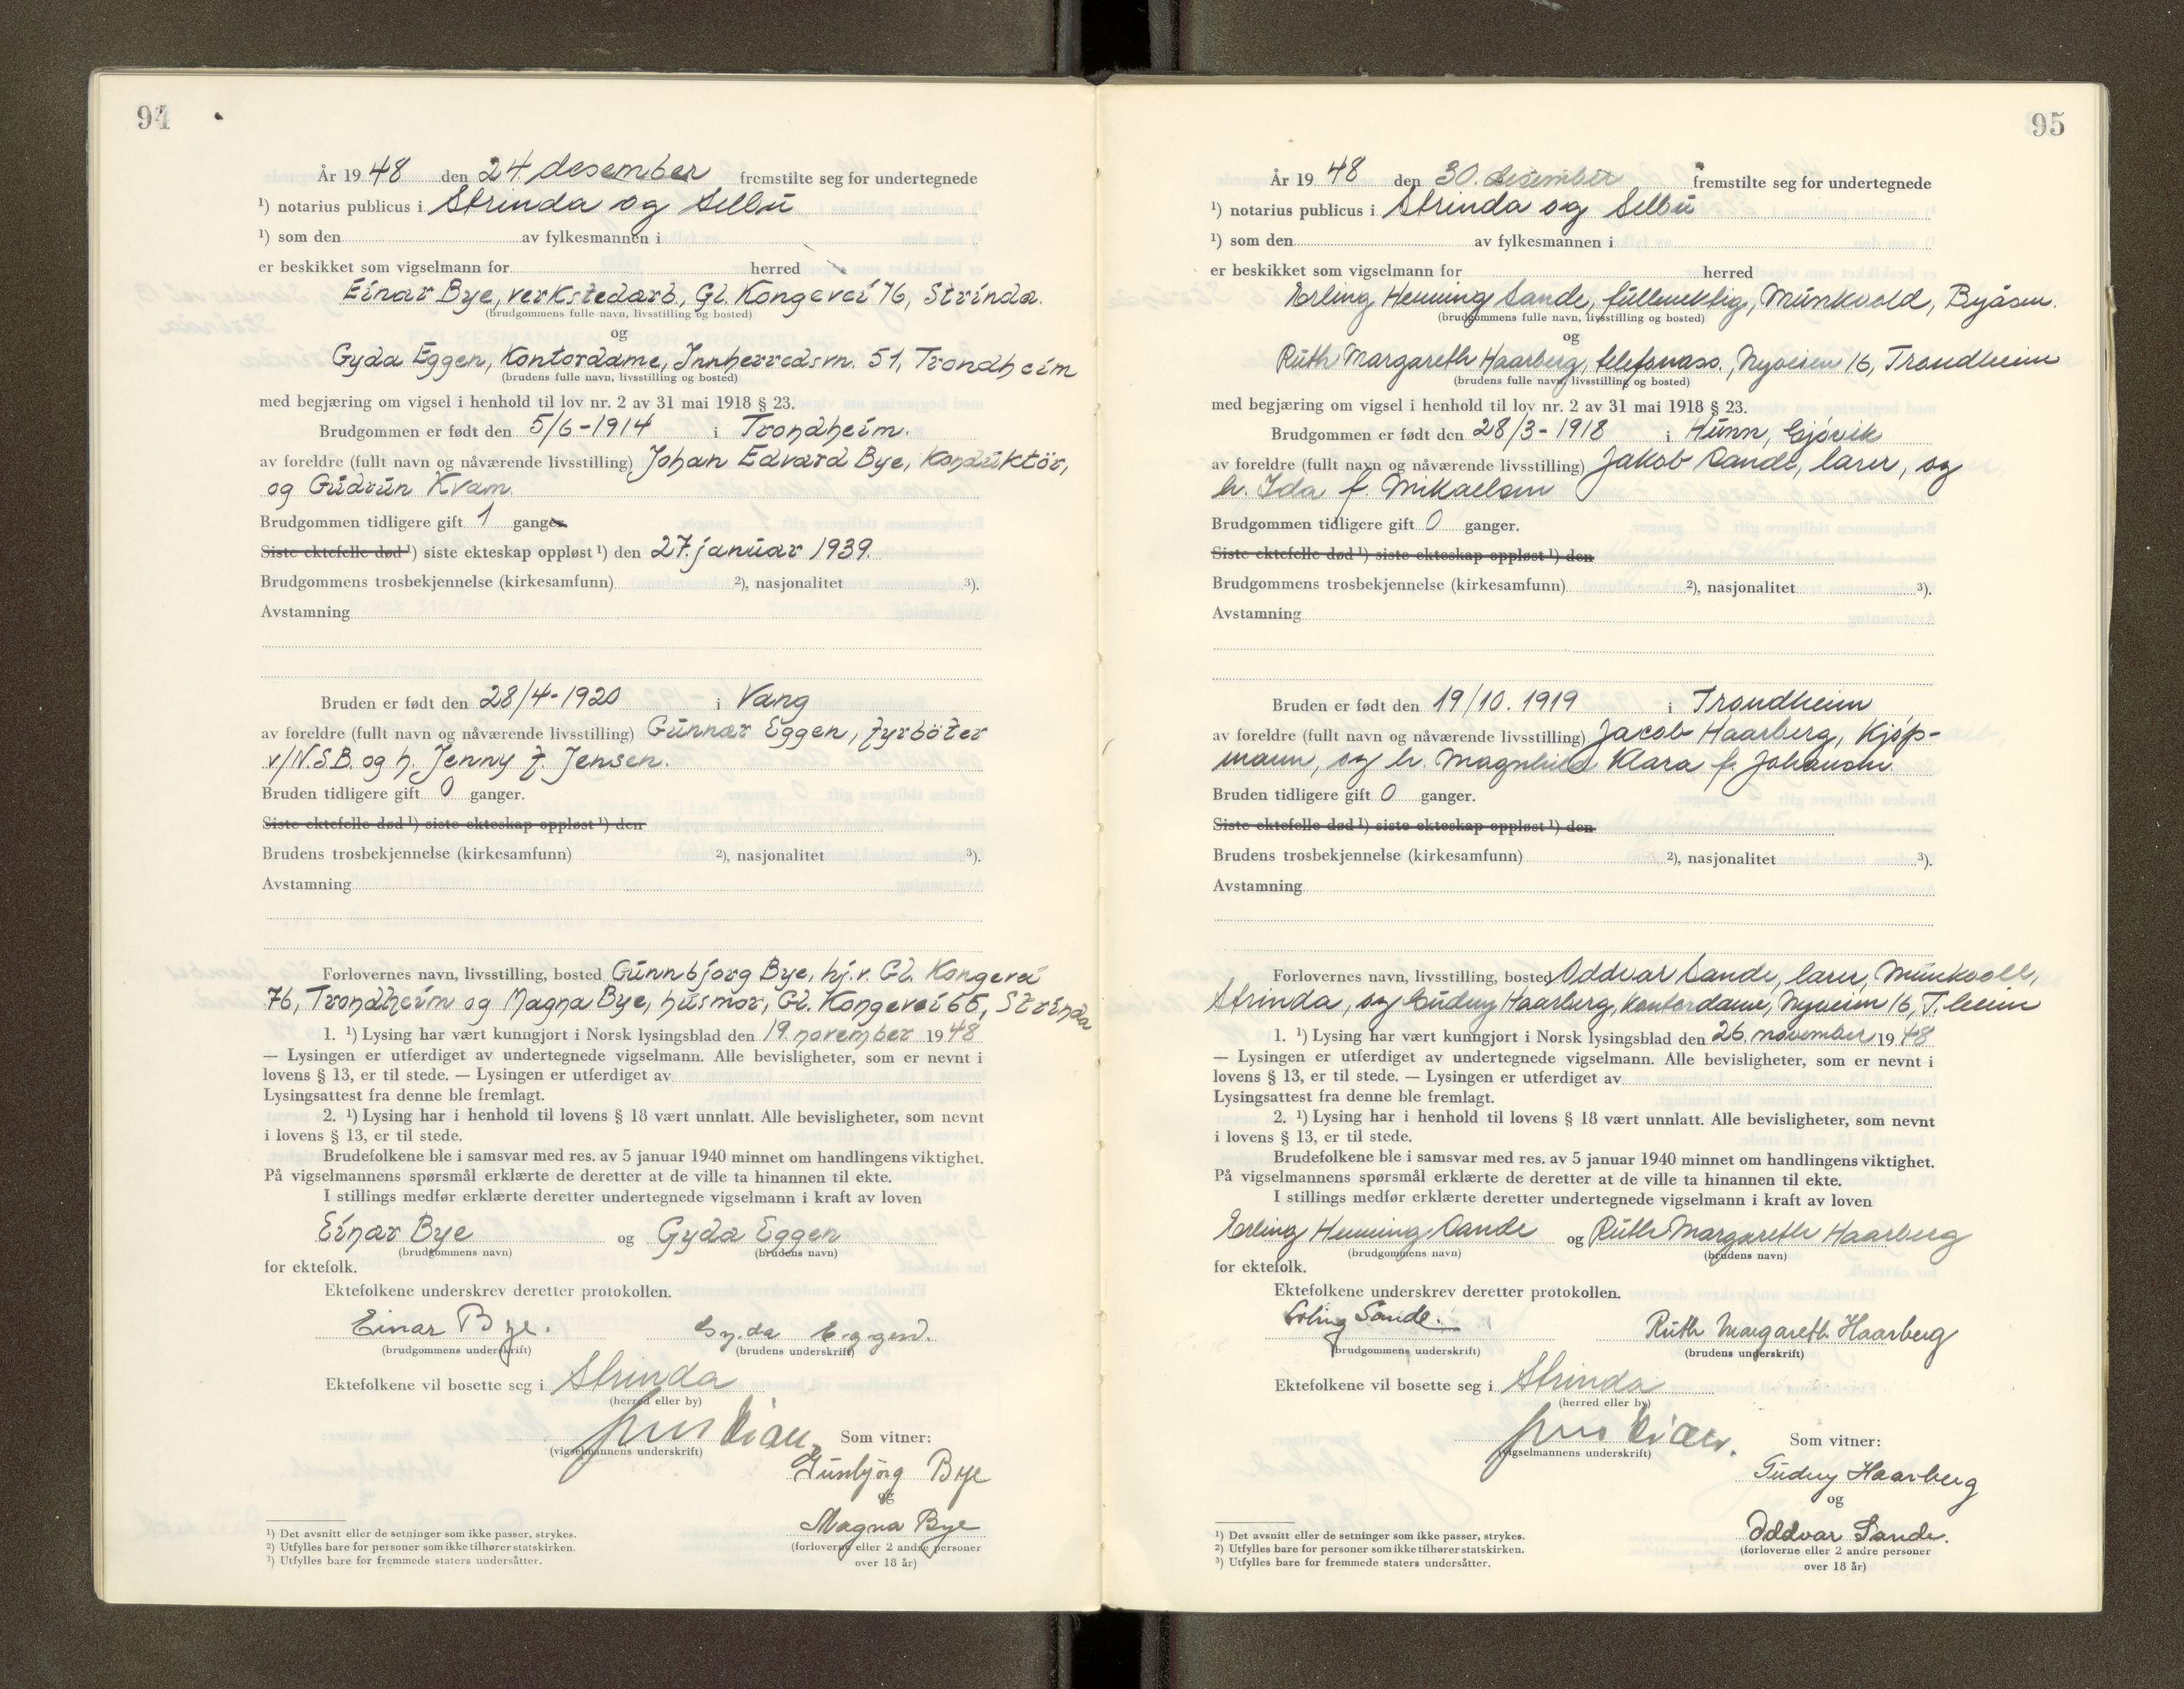 94
År 19 48 den 24. desember fremstilte seg for undertegnede
¹) notarius publicus i Strinda og Selbu
¹) som den av fylkesmannen i
er beskikket som vigselmann for herred
Einar Bye, verkstedarb., Gl. Kongevei 76, Strinda.
(brudgommens fulle navn, livsstilling og bosted)
og
Gyda Eggen, Kontordame, Innherredsvn. 51, Trondheim
(brudens fulle navn, livsstilling og bosted)
med begjæring om vigsel i henhold til lov nr. 2 av 31 mai 1918 § 23.
Brudgommen er født den 5/6-1914 i Trondheim.
av foreldre (fullt navn og nåværende livsstilling) Johan Edvard Bye, Konduktör,
og Gudrun Kvam.
Brudgommen tidligere gift 1 ganger
Siste ektefelle død ¹) siste ekteskap oppløst ¹) den 27. januar 1939.
Brudgommens trosbekjennelse (kirkesamfunn) ²), nasjonalitet ³).
Avstamning
Bruden er født den 28/4-1920 i Vang
av foreldre (fullt navn og nåværende livsstilling) Gunnar Eggen, fyrböter
v/N.S.B. og h. Jenny f. Jensen.
Bruden tidligere gift 0 ganger.
Siste ektefelle død ¹) siste ekteskap oppløst ¹) den
Brudens trosbekjennelse (kirkesamfunn) ²), nasjonalitet ³).
Avstamning
Forlovernes navn, livsstilling, bosted Gunnbjorg Bye, hj.v. Gl. Kongevei
76, Trondheim og Magna Bye, husmor, Gl. Kongevei 66, Strinda
1. ¹) Lysing har vært kunngjort i Norsk lysingsblad den 19. november 1948
— Lysingen er utferdiget av undertegnede vigselmann. Alle bevisligheter, som er nevnt i
lovens § 13, er til stede. — Lysingen er utferdiget av
Lysingsattest fra denne ble fremlagt.
2. ¹) Lysing har i henhold til lovens § 18 vært unnlatt. Alle bevisligheter, som nevnt
i lovens § 13, er til stede.
Brudefolkene ble i samsvar med res. av 5 januar 1940 minnet om handlingens viktighet.
På vigselmannens spørsmål erklærte de deretter at de ville ta hinannen til ekte.
I stillings medfør erklærte deretter undertegnede vigselmann i kraft av loven
Einar Bye og Gyda Eggen
(brudgommens navn) (brudens navn)
for ektefolk.
Ektefolkene underskrev deretter protokollen.
Einar Bye. Gyda Eggen.
(brudgommens underskrift) (brudens underskrift)
Ektefolkene vil bosette seg i Strinda
(herred eller by)
Som vitner:
(vigselmannens underskrift)
Gunbjörg Bye
og
Magna Bye
(forloverne eller 2 andre personer
over 18 år)
¹) Det avsnitt eller de setninger som ikke passer, strykes.
²) Utfylles bare for personer som ikke tilhører statskirken.
³) Utfylles bare for fremmede staters undersåtter.
95
År 19 48 den 30. desember fremstilte seg for undertegnede
¹) notarius publicus i Strinda og Selbu
¹) som den av fylkesmannen i
er beskikket som vigselmann for herred
Erling Henning Sande, fullmektig, Munkvold, Byåsen.
(brudgommens fulle navn, livsstilling og bosted)
og
Ruth Margareth Haarberg, telefonass., Nyveien 16, Trondheim
(brudens fulle navn, livsstilling og bosted)
med begjæring om vigsel i henhold til lov nr. 2 av 31 mai 1918 § 23.
Brudgommen er født den 28/3-1918 i Hunn, Gjøvik
av foreldre (fullt navn og nåværende livsstilling) Jakob Sande, lærer, og
h. Ida f. Mikaelsen
Brudgommen tidligere gift 0 ganger.
Siste ektefelle død ¹) siste ekteskap oppløst ¹) den
Brudgommens trosbekjennelse (kirkesamfunn) ²), nasjonalitet ³).
Avstamning
Bruden er født den 19/10.1919 i Trondheim
av foreldre (fullt navn og nåværende livsstilling) Jacob Haarberg, Kjøp-
mann, og h. Magnhild Klara f. Johansen.
Bruden tidligere gift 0 ganger.
Siste ektefelle død ¹) siste ekteskap oppløst ¹) den
Brudens trosbekjennelse (kirkesamfunn) ²), nasjonalitet ³).
Avstamning
Forlovernes navn, livsstilling, bosted Oddvar Sande, lærer, Munkvoll,
Strinda, og Gudny Haarberg, kontordame, Nyveien 16, T.heim
1. ¹) Lysing har vært kunngjort i Norsk lysingsblad den 26. november 1948
— Lysingen er utferdiget av undertegnede vigselmann. Alle bevisligheter, som er nevnt i
lovens § 13, er til stede. — Lysingen er utferdiget av
Lysingsattest fra denne ble fremlagt.
2. ¹) Lysing har i henhold til lovens § 18 vært unnlatt. Alle bevisligheter, som nevnt
i lovens § 13, er til stede.
Brudefolkene ble i samsvar med res. av 5 januar 1940 minnet om handlingens viktighet.
På vigselmannens spørsmål erklærte de deretter at de ville ta hinannen til ekte.
I stillings medfør erklærte deretter undertegnede vigselmann i kraft av loven
Erling Henning Sande og Ruth Margareth Haarberg
(brudgommens navn) (brudens navn)
for ektefolk.
Ektefolkene underskrev deretter protokollen.
Erling Sande. Ruth Margareth Haarberg
(brudgommens underskrift) (brudens underskrift)
Ektefolkene vil bosette seg i Strinda
(herred eller by)
Som vitner:
(vigselmannens underskrift)
Gudny Haarberg
og
Oddvar Sande.
(forloverne eller 2 andre personer
over 18 år)
¹) Det avsnitt eller de setninger som ikke passer, strykes.
²) Utfylles bare for personer som ikke tilhører statskirken.
³) Utfylles bare for fremmede staters undersåtter.